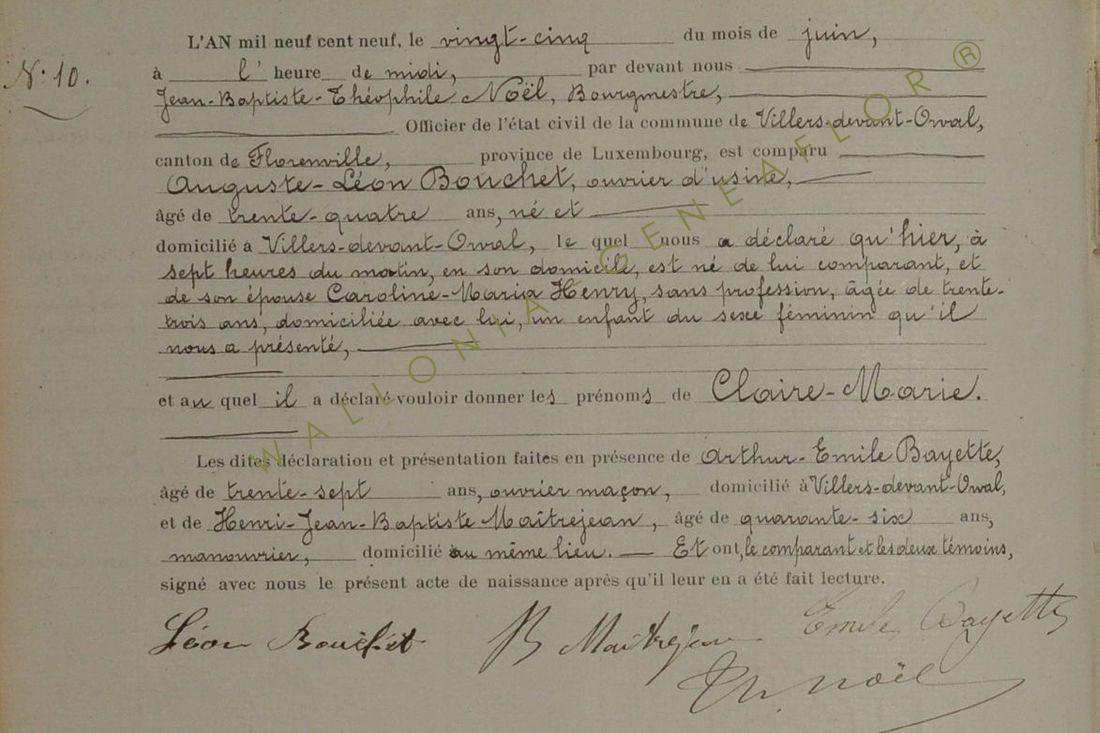 L'AN mil neuf cent neuf, le vingt-cinq du mois de juin,
N°: 10.
à l' heure de midi, par devant nous
Jean-Baptiste-Théophile Noël, Bourgmestre,
Officier de l'état civil de la commune de Villers-devant-Orval,
canton de Florenville, province de Luxembourg, est comparu
Auguste-Léon Bouchet, ouvrier d'usine,
âgé de trente-quatre ans, né et
domicilié à Villers-devant-Orval, le quel nous a déclaré qu'hier, à
sept heures du matin, en son domicile, est né de lui comparant, et
de son épouse Caroline-Maria Henry, sans profession, âgée de trente-
trois ans, domiciliée avec lui, un enfant du sexe féminin qu'il
nous a présenté,
et au quel il a déclaré vouloir donner les prénoms de Claire-Marie.
Les dites déclaration et présentation faites en présence de Arthur-Emile Bayette,
âgé de trente-sept ans, ouvrier maçon, domicilié à Villers-devant-Orval,
et de Henri-Jean-Baptiste Maîtrejean, âgé de quarante-six ans,
manouvrier, domicilié au même lieu. — Et ont, le comparant et les deux témoins,
signé avec nous le présent acte de naissance après qu'il leur en a été fait lecture.
Léon Bouchet B Maîtrejean Emile Bayette
Th. Noël
WALLONIA GENEAFLOR ®